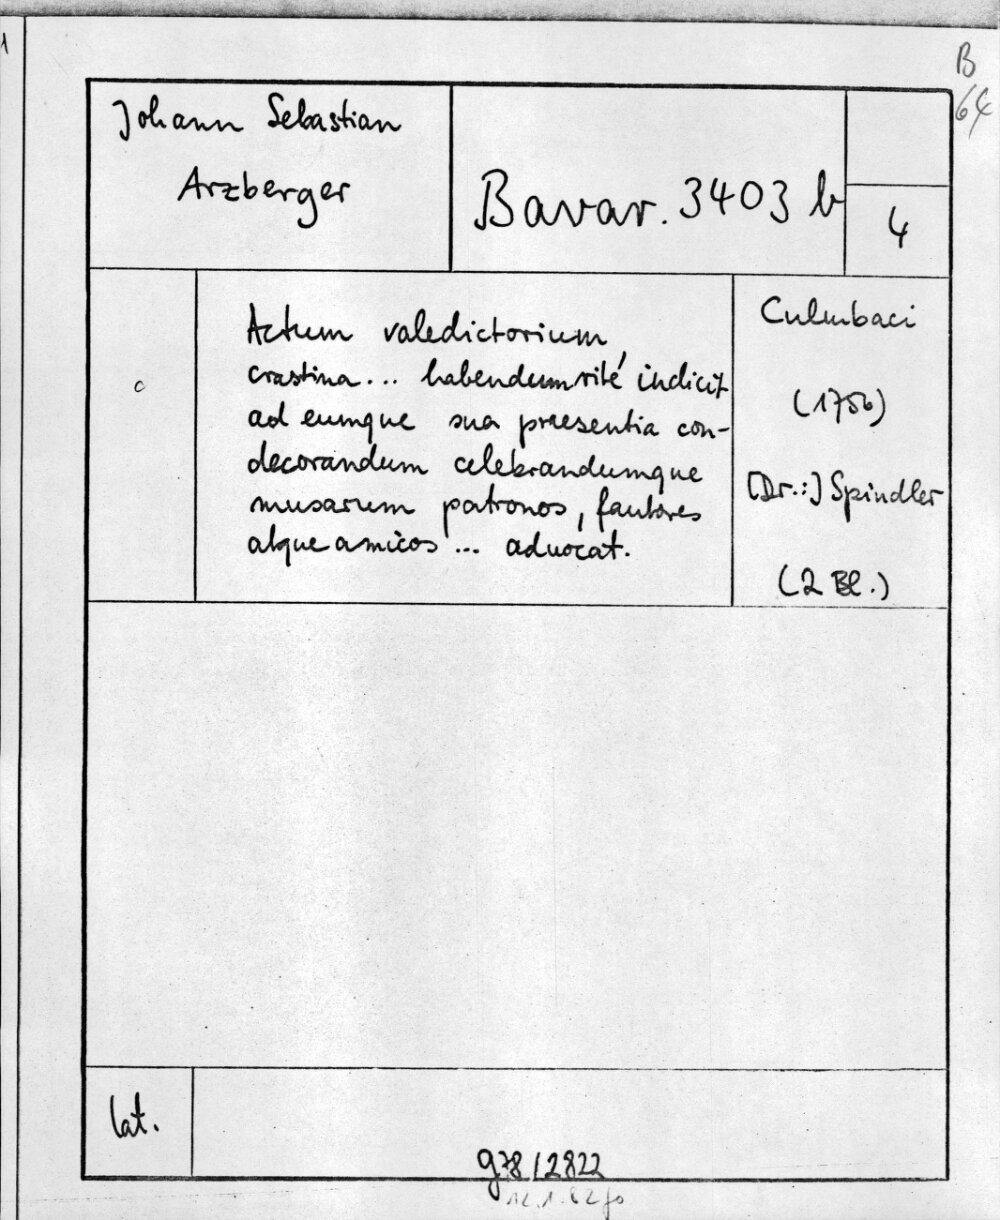 B
64
Johann Sebastian
Arzberger
Bavar. 3403 b
4
Actum valedictorium
crastina... habendum rité indicit
ad eumque sua praesentia con-
decorandum celebrandumque
musarum patronos, fautores
atque amicos ... advocat.
c
Culmbaci
(1756)
[Dr.:] Spindler
(2 Bl.)
lat.
g78/2822